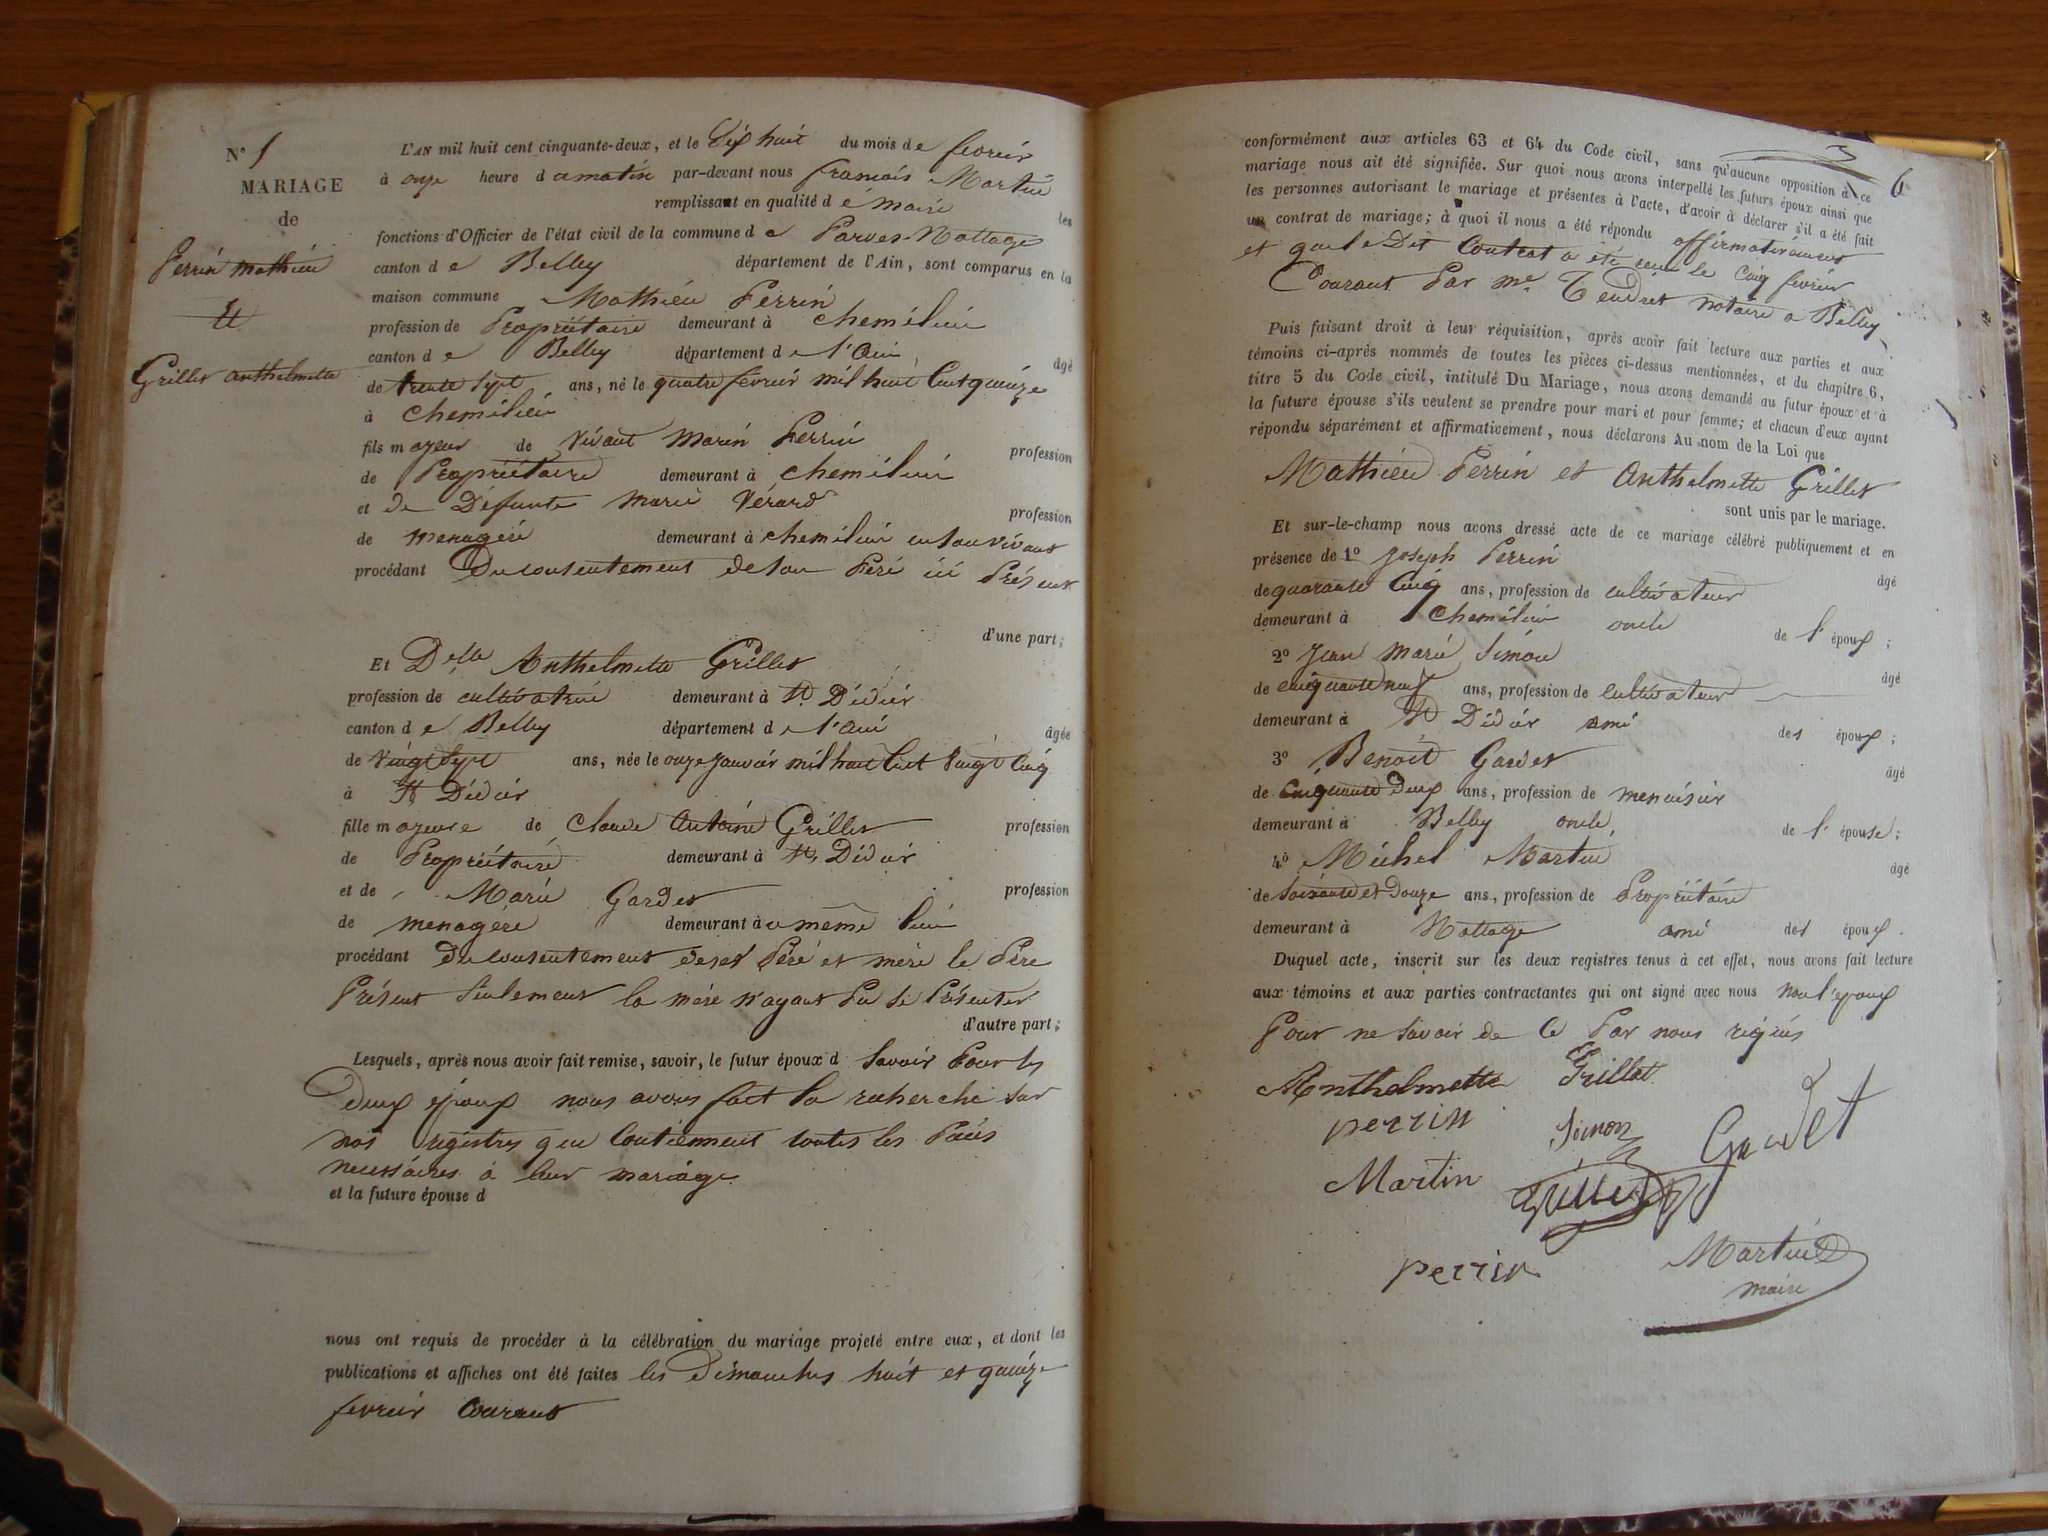 N° 1
MARIAGE
de
Perrin Mathieu
Et
Grillet Anthelmette
L'AN mil huit cent cinquante-deux, et le Dix huit du mois de fevrier
à onze heure d amatin par-devant nous francois Martin
remplissant en qualité d e Maire les
fonctions d'Officier de l'état civil de la commune d e Parves-Nattages
canton d e Belley département de l'Ain, sont comparus en la
maison commune Mathieu Perrin
profession de Propriétaire demeurant à Chemilieu
canton d e Belley département d e l'Ain âgé
de trente sept ans, né le quatre fevrier mil huit Cent quinze
à Chemilieu
fils m ajeur de vivant Marin Perrin profession
de Propriétaire demeurant à Chemilieu
et de Défunte Marie Vérard profession
de menagère demeurant à chemilieu en son vivant
procédant Du consentement de son Père ici Présent
d'une part;
Et Delle Anthelmette Grillet
profession de cultivatrice demeurant à St Didier
canton d e Belley département d e l'Ain âgée
de vingt sept ans, née le onze janvier mil huit Cent vingt Cinq
à St Didier
fille m ajeure de Claude Antoine Grillet profession
de Propriétaire demeurant à St Didier
et de Marie Gardet profession
de menagère demeurant à u même lieu
procédant Du consentement de ses Père et mère le Père
Présent Seulement la mère n'ayant Pu se Présenter
d'autre part;
Lesquels, après nous avoir fait remise, savoir, le futur époux d Savoir Pour les
Deux époux nous avons fait la recherche sur
nos registres que Contiennent toutes les Pièces
necessaires à leur mariage
et la future épouse d
nous ont requis de procéder à la célébration du mariage projeté entre eux, et dont les
publications et affiches ont été faites les Dimanches huit et quinze
fevrier Courant
6
conformément aux articles 63 et 64 du Code civil, sans qu'aucune opposition à ce
mariage nous ait été signifiée. Sur quoi nous avons interpellé les futurs époux ainsi que
les personnes autorisant le mariage et présentes à l'acte, d'avoir à déclarer s'il a été fait
un contrat de mariage; à quoi il nous a été répondu affirmativement
et que le Dit Contrat a été le Cinq fevrier
Courant Par Me Tendret notaire a Belley
Puis faisant droit à leur réquisition, après avoir fait lecture aux parties et aux
témoins ci-après nommés de toutes les pièces ci-dessus mentionnées, et du chapitre 6,
titre 5 du Code civil, intitulé Du Mariage, nous avons demandé au futur époux et à
la future épouse s'ils veulent se prendre pour mari et pour femme; et chacun d'eux ayant
répondu séparément et affirmativement, nous déclarons Au nom de la Loi que
Mathieu Perrin et Anthelmette Grillet
sont unis par le mariage.
Et sur-le-champ nous avons dressé acte de ce mariage célébré publiquement et en
présence de 1° Joseph Perrin âgé
de quarante Cinq ans, profession de cultivateur
demeurant à Chemilieu oncle de l' époux;
2° Jean Marie Simon âgé
de cinquante neuf ans, profession de cultivateur
demeurant à St Didier ami des époux;
3° Benoit Gardet âgé
de Cinquante Deux ans, profession de menuisier
demeurant à Belley oncle de l' épouse;
4° Michel Martin âgé
de Soixante et Douze ans, profession de Propriétaire
demeurant à Nattage ami des époux.
Duquel acte, inscrit sur les deux registres tenus à cet effet, nous avons fait lecture
aux témoins et aux parties contractantes qui ont signé avec nous non l'époux
Pour ne Savoir de Ce Par nous requis
Anthelmette Grillet
perrin Simon Gardet
Martin Grillet
perrin Martin
maire